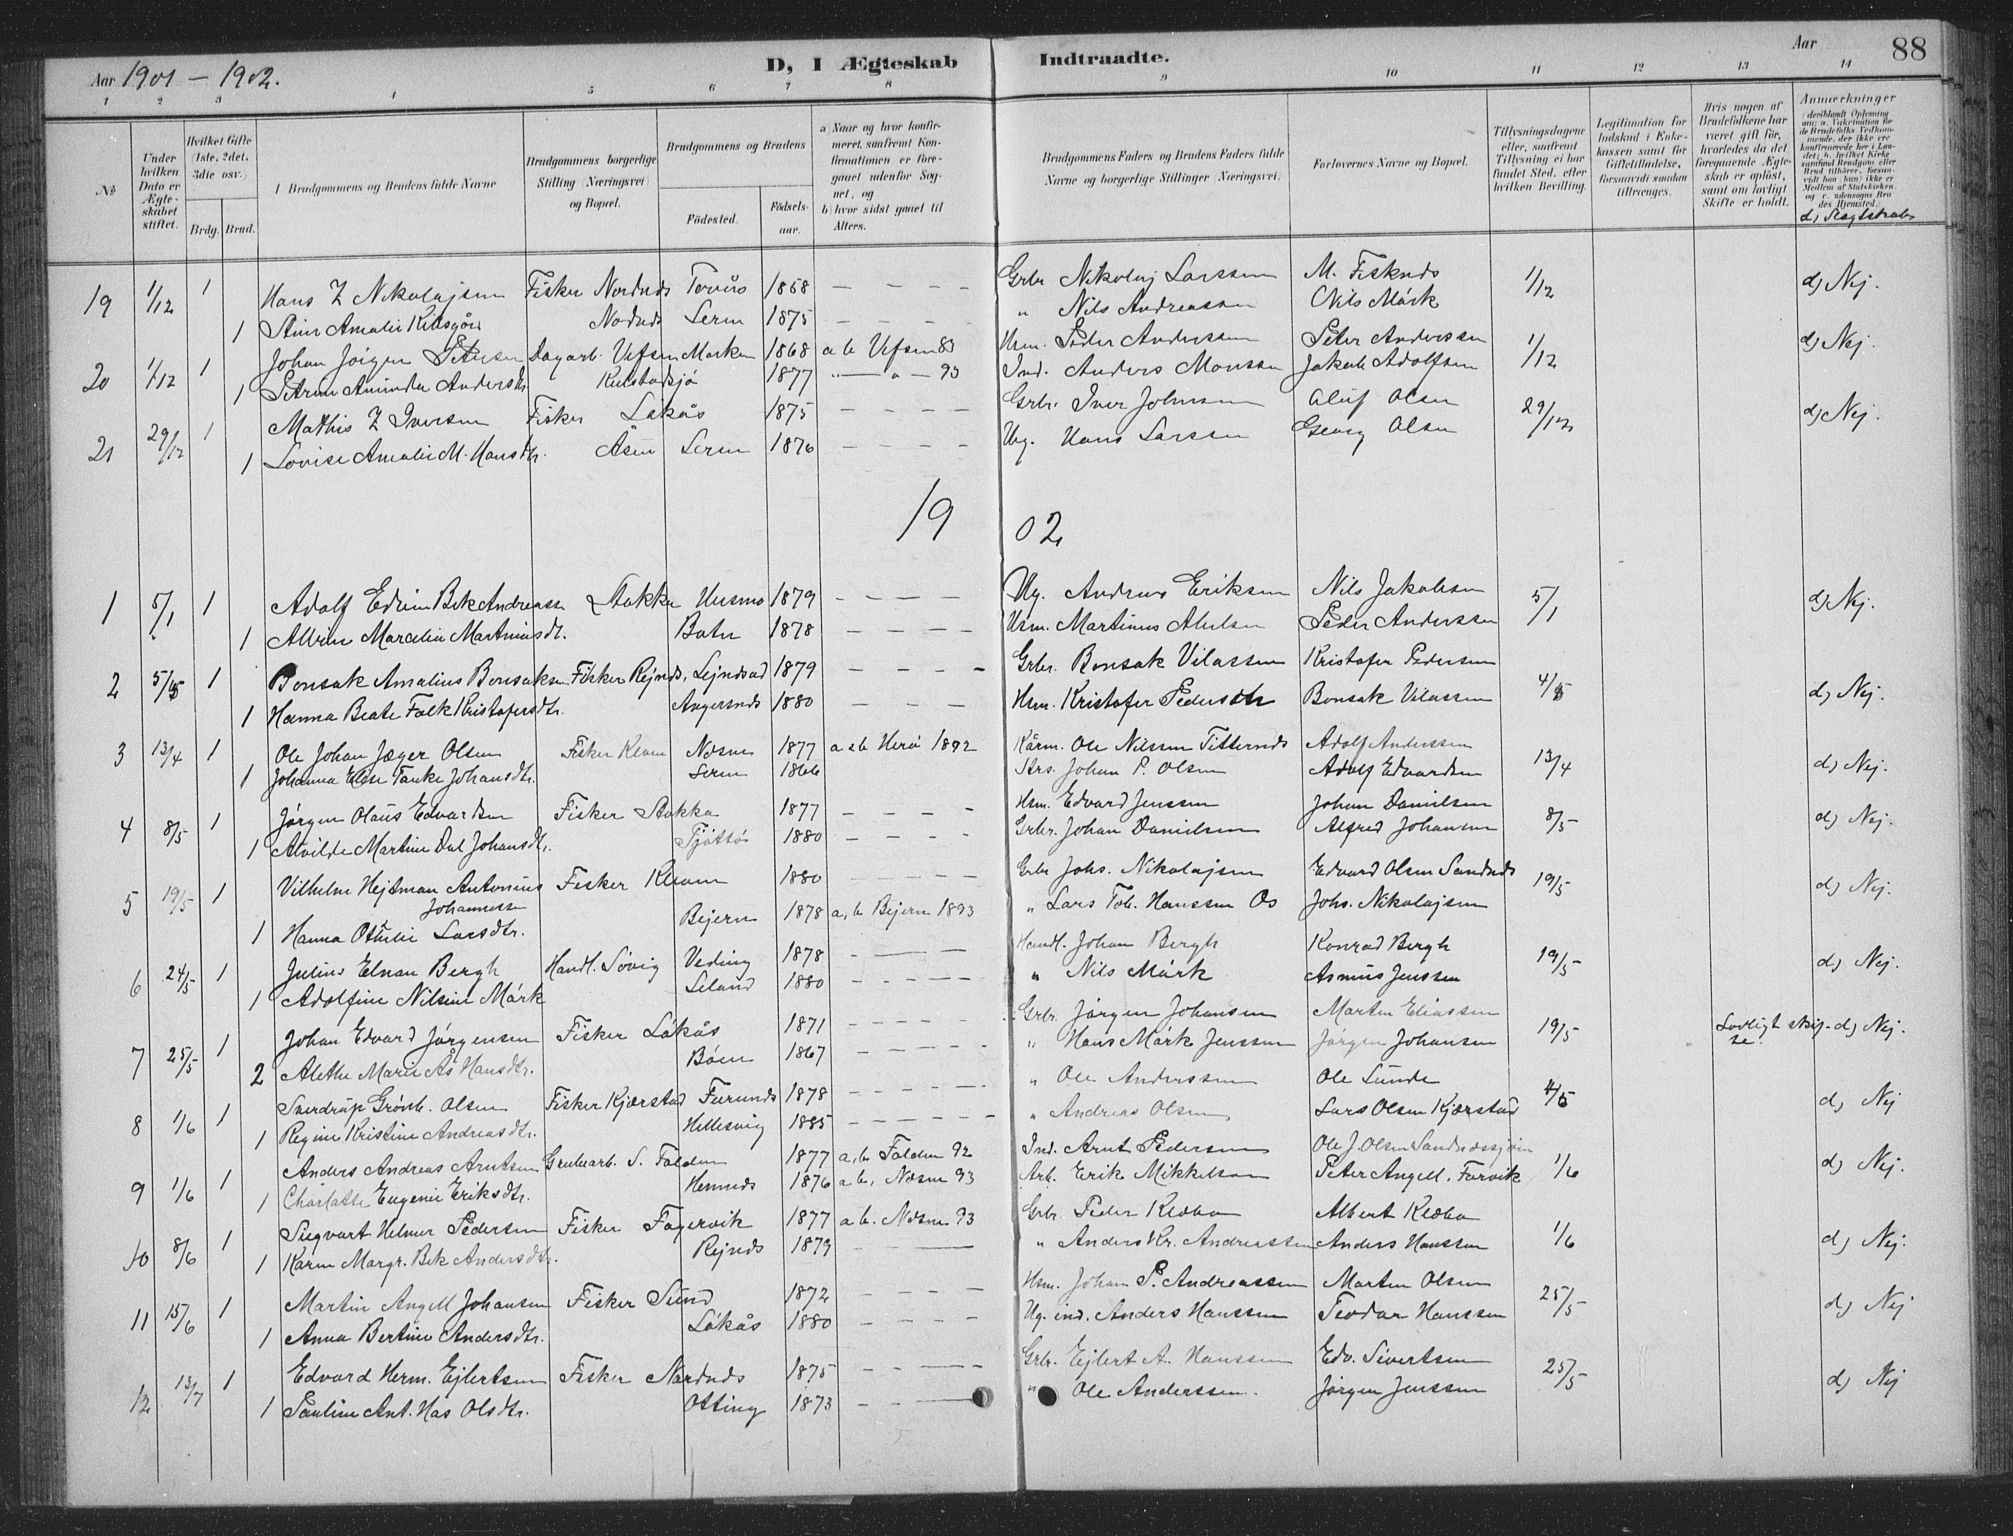 Aar 1901 – 1902.
D, I Ægteskab Indtraadte.
Aar 88
1 2 3 4 5 6 7 8 9 10 11 12 13 14
№
Under hvilken Dato er Ægteskabet stiftet.
Hvilket Gifte (1ste, 2det, 3die osv.)
Brdg. Brud.
Brudgommens og Brudens fulde Navne
Brudgommens borgerlige Stilling (Næringsvei) og Bopæl.
Brudgommens og Brudens
Fødested. Fødselsaar.
a) Naar og hvor konfirmeret, saafremt Konfirmationen er foregaaet udenfor Sognet, og
b) hvor sidst gaaet til Alters.
Brudgommens Faders og Brudens Faders fulde Navne og borgerlige Stillinger (Næringsvei).
Forlovernes Navne og Bopæl.
Tillysningsdagene eller, saafremt Tillysning ei har fundet Sted, efter hvilken Bevilling.
Legitimation for Indskud i Enkekassen samt for Giftetilladelse, forsaavidt saadan tiltrænges.
Hvis nogen af Brudefolkene har været gift før, hvorledes da det foregaaende Ægteskab er opløst, samt om lovligt Skifte er holdt.
Anmærkninger
d) Slægtskab
19 1/12 1 Hans Z Nikolajsen Fisker Nordnds Tovås 1868 — — — — Grbr Nikolaj Larssen M. Fisknds 1/12 d) Nej.
1 Amalie Nodnds Leren 1875 — — — — „ Nils Andreassen Nils Mårk
20 1/12 1 Johan Jørgen Petersen Dagarb. Vefsen Marken 1868 a b Vefsen 83 Hsm. Peder Anderssen Peter Anderssen 1/12 d) Nej.
1 Aminda Andersdtr. Kulstadsjø 1877 „ — „ — 93 Ind. Anders Monssen Jakob Adolfsen
21 29/12 1 Mathis Z Iversen Fisker Låkås 1875 — — — — Grbr. Iver Johnsen Oluf Olsen 29/12 d) Nej.
1 Lovise Amalie M. Hansdtr. Åsen Leren 1876 — — — — Ug. Hans Larssen Georg Olsen
19 02
1 5/1 1 Adolf Edvin Bek Andreassen Stokka Husmo 1879 — — — — Ug. Andreas Eriksen Nils Jakobsen 5/1 d) Nej.
1 Albine Marcelie Martinusdtr. Botn 1878 — — — — Hsm. Martinus Abelsen Peder Anderssen
2 5/5 1 Bonsak Amalius Bonsaksen Fisker Rejnds. 1879 — — — — Grbr. Bonsak Vilassen Kristofer Pedersen 4/5 d) Nej.
1 Hanna Beate Falk Kristofersdtr. Angersnds 1880 — — — Hsm. Kristofer Bonsak Vilassen
3 13/4 1 Ole Johan Jæger Olsen Fisker Kleven Næsne 1877 a & b Herø 1892 Kårm. Ole Nilssen Titternds Adolf Anderssen 13/4 d) Nej.
1 Johanna Else Tanke Johansdtr. Leren 1866 Johan P. Olsen Adolf Edvardsen
4 8/5 1 Jørgen Olaus Edvardsen Fisker Stokka 1877 — — — — Hsm. Edvard Jenssen Johan Danielsen 8/5 d) Nej.
1 Alvilde Martine Dal Johansdtr. Tjøttø 1880 — — — — Grbr. Johan Danielsen Alfred Johansen
5 19/5 1 Vilhelm Hejtman Antonius Johannessen Fisker Kleven 1880 — — — — Grbr Johs. Nikolajsen Edvard Olsen Sandnds 19/5 d) Nej.
1 Hanna Othelie Larsdtr. Bejern 1878 a, b Bejern 1893 „ Lars Tob. Hanssen Os Johs. Nikolajsen
6 24/5 1 Julius Elnan Bergh Handl. Søvig Veding 1878 — — — Handl. Johan Bergh Konrad Bergh 19/5 d) Nej.
1 Adolfine Nilsine Mårk Leland 1880 — — — — „ Nils Mårk Asmus Jenssen
7 25/5 1 Johan Edvard Jørgensen Fisker Låkås 1871 — — — — Grbr. Jørgen Johansen Martin Eliassen 19/5 Lovligt skifte. d) Nej.
2 Alethe Marie Ås Hansdtr. Bøen 1867 — — — — „ Hans Mårk Jenssen Jørgen Johansen
8 1/6 1 Sverdrup Grønb. Olsen Fisker Kjærstad Furunds 1878 — — — — „ Ole Anderssen Ole Lunde 4/5 d) Nej
1 Regine Kristine Andreasdtr. Hellesvig 1885 — — — — „ Andreas Olsen Lars Olsen Kjærstad
9 1/6 1 Anders Andreas Arntsen Grubearb. S. Folden 1877 a, b Folden 92 Ind. Arnt Pedersen Ole J. Olsen Sandnæssjøen 1/6 d) Nej.
1 Charlotte Eugenie Eriksdtr. Hemnds 1876 a b, Næsne 93 Arb. Erik Mikkelsen Peter Angell, Forvik
10 8/6 1 Sigvart Helmer Pedersen Fisker Fagervik 1877 a b. Næsne 93 Grbr. Peder Klæbo Albert Klæbo 1/6 d) Nej.
1 Karen Margr. Bek Andersdtr. Rejnds 1879 — — — „ Anders Kr. Andreassen Anders Hanssen
11 15/6 1 Martin Angell Johansen Fisker Sund 1872 — — — — Hsm. Johan P. Andreassen Martin Olsen 25/5 d) Nej
1 Anna Bertine Andersdtr. Låkås 1880 — — — — Ug. ind. Anders Hanssen Teodor Hanssen
12 13/7 1 Edvard Herm. Ejlertsen Fisker Nordnds 1875 — — — — Grbr. Ejlert A. Hanssen Edv. Sivertsen 25/5 d) Nej
1 Pauline Ant. Has Olsdtr. Otting 1873 — — — „ Ole Anderssen. Jørgen Jenssen